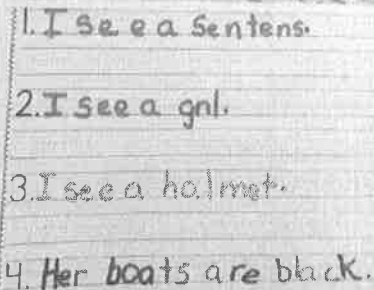 1. I see a Sentens.
2. I see a gnl.
3. I see a halmet.
4. Her boats are black.